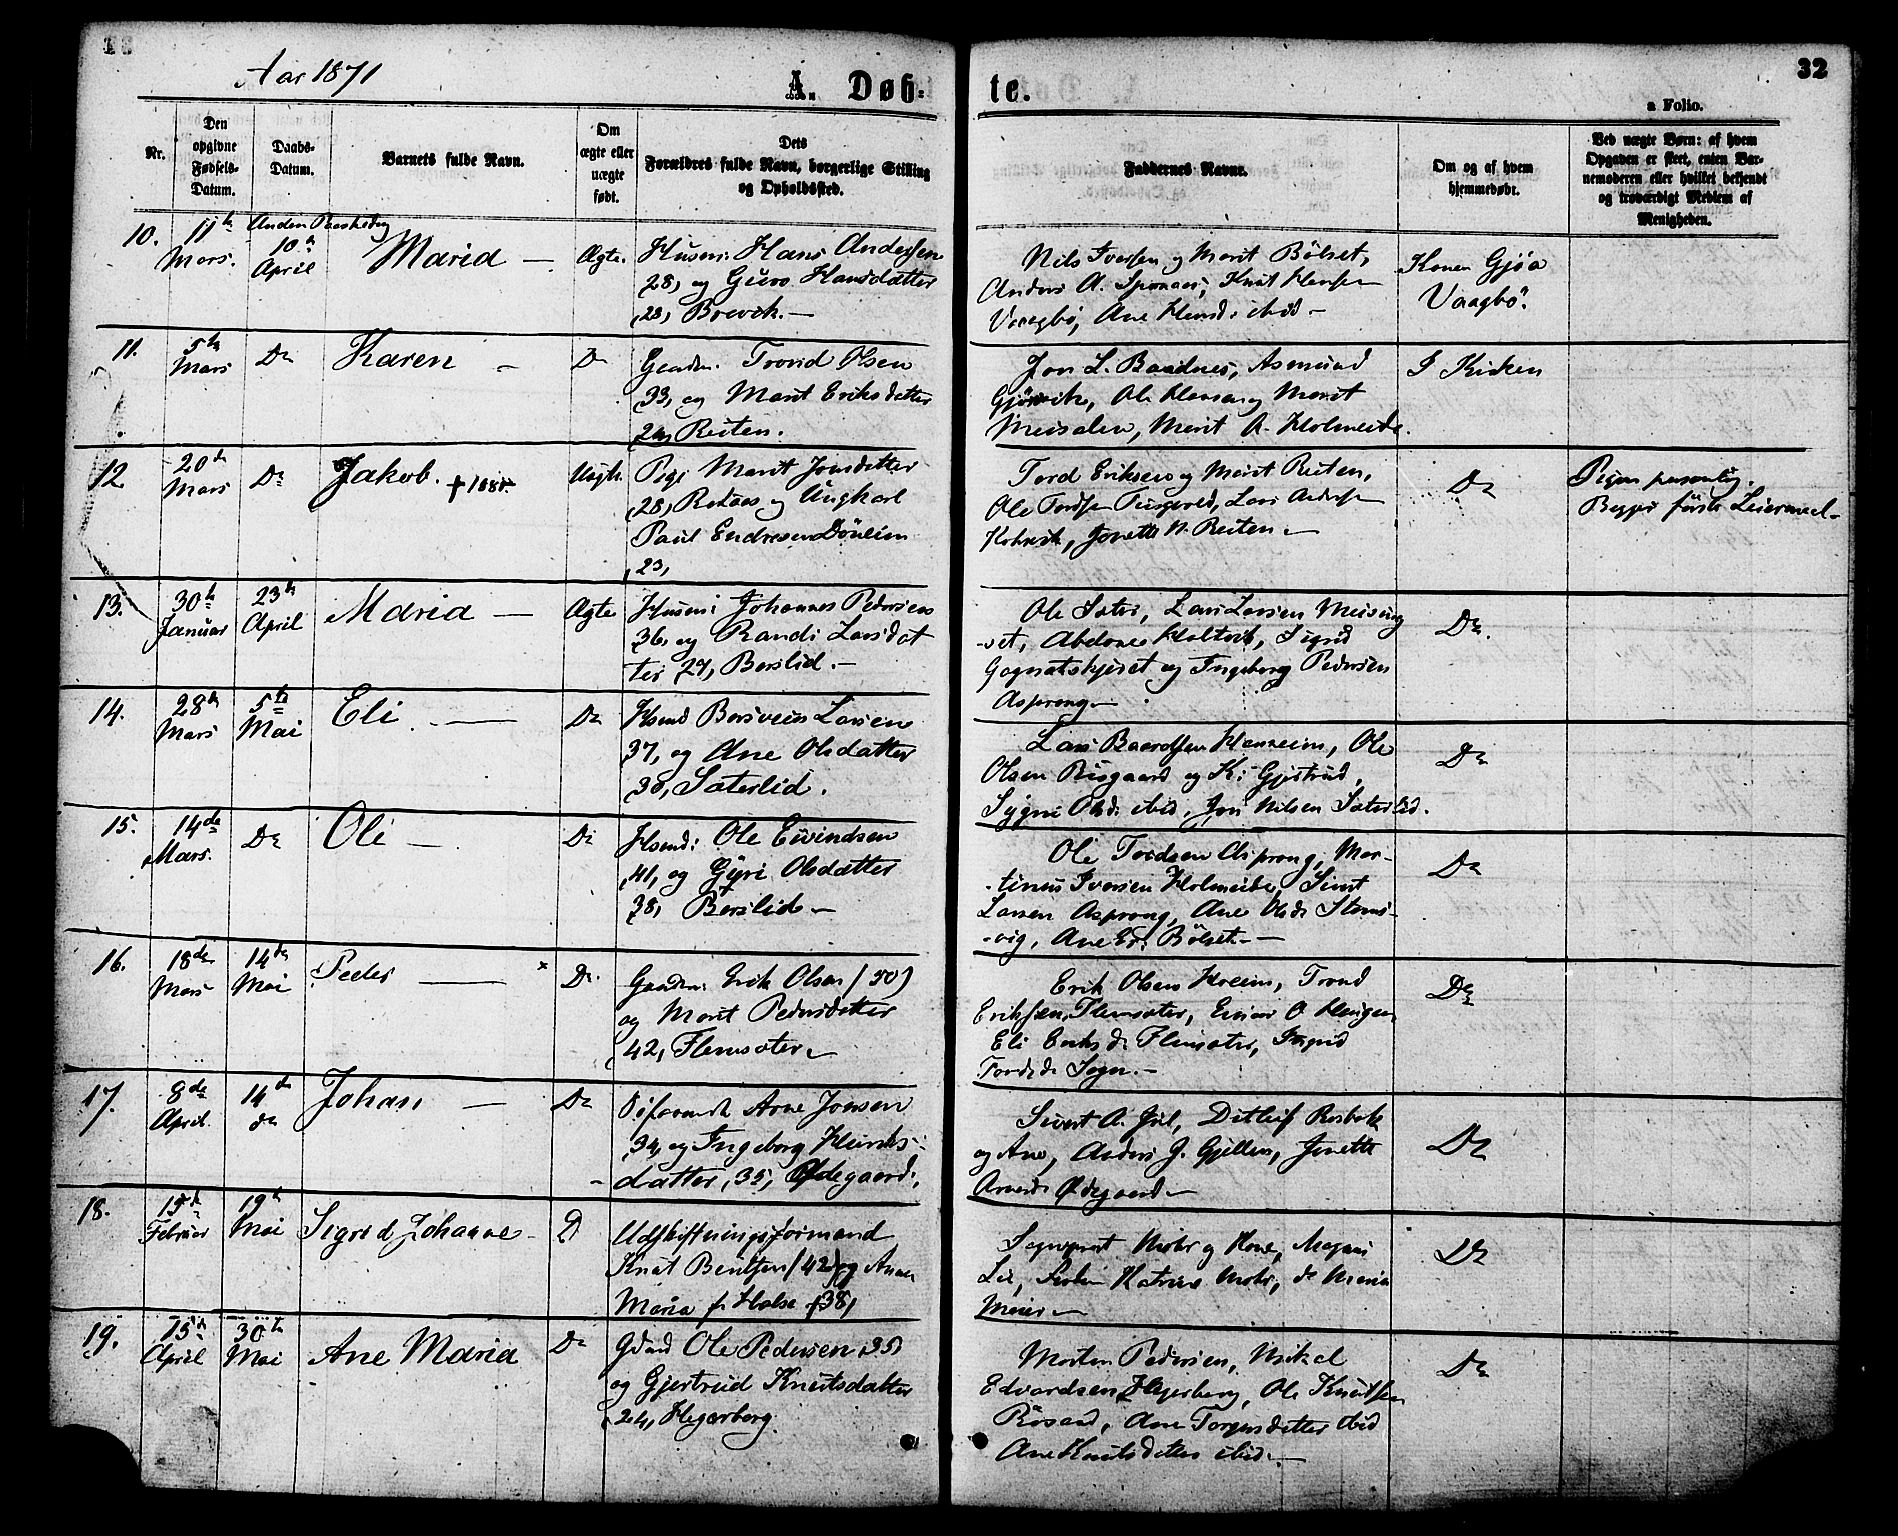 Aar 1871
A. Døb-
te.
32
a Folio.
Nr.
Den
opgivne
Fødsels-
Datum.
Daabs-
Datum.
Barnets fulde Navn.
Om
ægte eller
uægte
født.
Dets
Forældres fulde Navn, borgerlige Stilling
og Opholdssted.
Faddernes Navne.
Om og af hvem
hjemmedøbt.
Ved uægte Børn: af hvem
Opgaven er skeet, enten Bar-
nemoderen eller hvilket bekjendt
og troværdigt Medlem af
Menigheden.
10.
11te
Mars.
Anden Paaskedag
10de
April
Maria —
Ægte.
Husm: Hans Andersen
28, og Guro Hansdatter
28, Brevik. —
Nils Iversen og Marit Bölset,
Anders A. Knut Hansen
Vaagbø, Ane ibid —
Konen Gjøa
Vaagbø.
11.
5te
Mars
Do
Karen —
Do
Gaardm. Trond Olsen
33, og Marit Eriksdatter
Reiten.
Jon L. Baadnes, Asmund
Gjørvik, Ole Hansen og Marit
Meisalen, Marit A. Holmeide.
I Kirken
12.
20de
Mars
Do
Jakob.
Uægte.
Pige Marit Jonsdatter
28, og Ungkarl
Paul Endresen Döneim
23,
Tord Eriksen og Marit Reiten,
Ole Tordsen Lars Andersen
Jonette N. Reiten. —
Do
Pigen personlig.
Begges første Leiermaal —
13.
30te
Januar
23de
April
Maria —
Ægte
Husm: Johannes Pedersen
36, og Randi Larsdat
ter 27, Berslid. —
Ole Sæter, Lars Larsen Meising
-set, Abelone Sigrid
og Ingeborg Pedersen
Asprong —
Do.
14.
28de
Mars
5te
Mai
Eli —
Do
Husmd Larsen
37, og Ane Olsdatter
38, Sæterlid.
Lars Baardsen Ole
Olsen Risgaard og Ks Gjertrud,
Sygni Olsd: ibid, Jon Nilsen Sæterlid.
Do
15.
14de
Mars.
Do
Oli —
Do
Husmd: Ole Eivindsen
41, og Gýri Olsdatter
38, Berslid —
Ole Tordsen Asprong, Mar-
-tinus Iversen Holmeide, Sivert
Larsen Asprong, Ane Olsd:
-vig, Ane Bölset. —
Do
16.
18de
Mars
14de
Mai
Peder — x
Do
Gaardm: Erik Olsen (50)
og Marit Pedersdatter
42, Flemsæter —
Erik Olsen Trond
Eriksen Flemsæter, Einar O.
Eli Eriksd: Flemsæter, Ingrid
Do
17.
8de
April.
14de
do
Johan —
Do
Arne Jonsen
34, og Ingeborg Henriks-
-datter, 35, Ødegaard.
Sivert A. Ditlef Rosbak
og Ane, Anders J. Gjellen, Jonette
Arnesd: Ødegaard —
Do
18.
15de
Februar
19de
Mai
Sigrid Johanne —
Do
Udskiftningsformand
Knut Bentsen (42) og Anne
Maria f. Halse (38)
Sognepræst Mohr og Kone, Magnus
Lie, Frøken Katrine Mohr, do Maria
Meier —
Do
19.
15de
April
30te
Mai
Ane Maria
Do
Gdmd Ole Pedersen 35
og Gjertrud Knutsdatter
24, Hegerberg.
Morten Pedersen, Mikal
Edvardsen Hegerberg, Ole Knutsen
Røsand, Ane Torgersdatter ibid
Ane Knutsdatter ibid. —
Do